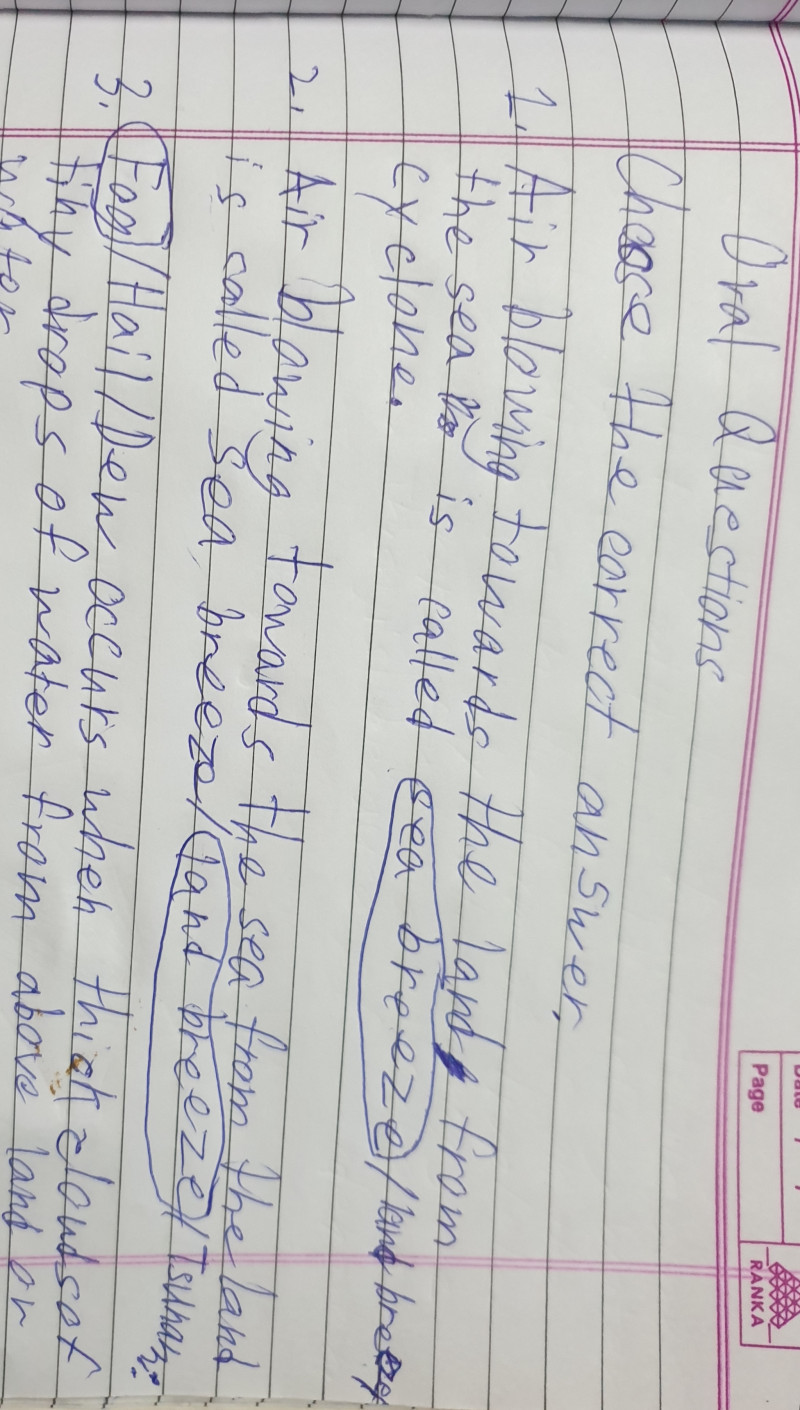 Page
RANKA
Oral Questions
Choose the correct answer.
1. Air blowing towards the land from
the sea is called sea breeze/land breeze/
cyclone.
2. Air blowing towards the sea from the land
is called sea breeze/land breeze/Tsunami.
3. Fog/Hail/Dew occurs when thick clouds of
tiny drops of water from above land or